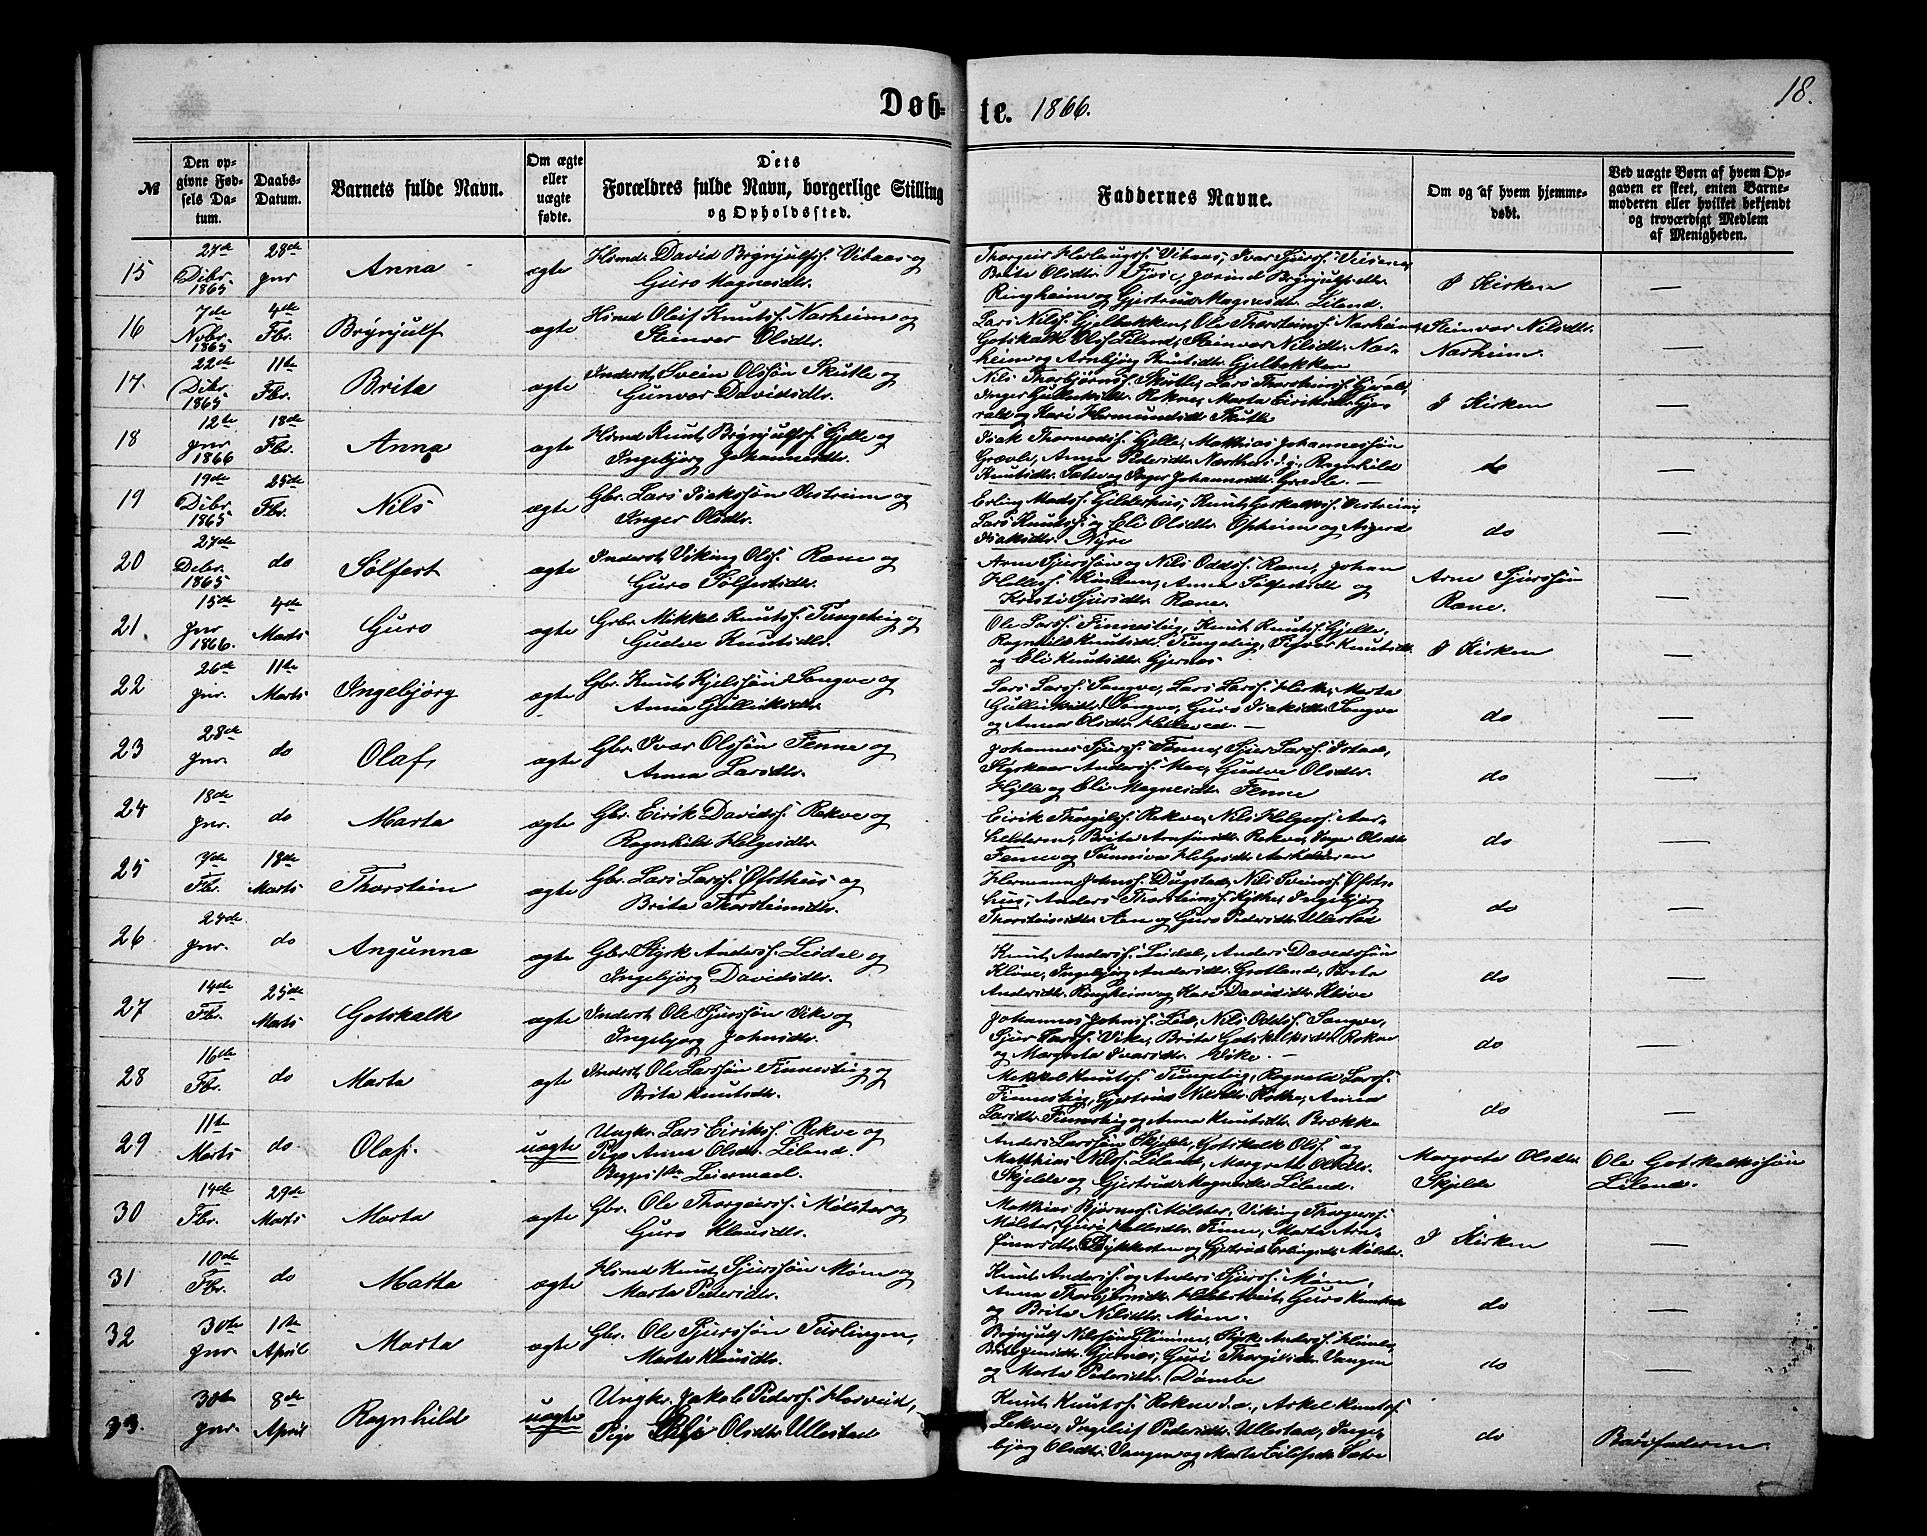 Døb-
te. 1866.
18.
№
Den op-
givne Fød-
sels Da-
tum.
Daabs-
Datum.
Barnets fulde Navn.
Om ægte
eller
uægte
fødte.
Dets
Forældres fulde Navn, borgerlige Stilling
og Opholdssted.
Faddernes Navne.
Om og af hvem hjemme-
døbt.
Ved uægte Børn af hvem Op-
gaven er skeet, enten Barne-
moderen eller hvilket bekjendt
og troværdigt Medlem
af Menigheden.
15
27de
Dcbr.
1865
28de
Jnr
Anna
ægte
Hsmd. David Brynjulfs. Vibaas og
Guro Magnesdtr.
Brita Olsdtr. Brynjulfsdtr.
Ringheim og Gjertrud Magnesdtr. Liland.
I Kirken
—
16
7de
Nvbr.
1865
4de
Fbr.
Brynjulf
ægte
Hsmd Oleif Knuts. Narheim og
Steinvor Olsdtr.
Lars Nils. Gjelbakken, Ole Thorsteins. Narheim,
Gotskalk Ols. Liland, Steinvor Nilsdtr. Nar-
heim og Arnbjørg Knutsdtr. Gjelbakken
Steinvor Nilsdtr.
Narheim.
—
17.
22de
Dcbr.
1865
11te
Fbr.
Brita
ægte
Inderst. Svein Olssøn Skutle og
Gunvor Davidsdtr.
Nils Thorbjørns. Skutle, Lars Thorsteins.
Inger Rekve, Marta Eiriksdtr. Gje-
rald og Kari Hermundsdtr Skutle
I Kirken
—
18
12te
Jnr
1866
18de
Fbr.
Anna
ægte
Hsmd Knut Brynjulfs. Gjelle og
Ingebjørg Johannesdtr.
Isak Thormods. Gjelle, Matthias Johannessøn
Græle, Anna Pedersdtr. Ragnhild
Knutsdtr. Sætre og Inger Johannesdtr. Græle. —
do
—
19
19de
Dcbr.
1865
25de
Fbr.
Nils
ægte
Gbr. Lars Isakssøn Vestreim og
Inger Olsdtr.
Erling Mads. Gjelderhus, Knut Gotskalks. Vestreim,
Lars Knuts. og Eli Olsdtr. Opheim og
Isaksdtr. Nyre
do
—
20
27de
Dcbr.
1865
do
Sølfest
ægte
Inderst. Viking Ols. Røne og
Guro Sølfestsdtr.
Arne Sjurssøn og Nils Odds. Røne, Johan
Helles. Anna Sølfestsdtr og
Kristi Sjursdtr. Røne.
Arne Sjurssøn
Røne.
—
21
15de
Jnr
1866.
4de
Marts
Guro
ægte
Gbr. Mikkel Knuts. Tungeteig og
Gudve Knutsdtr.
Ole Lars. Finnesteig, Knut Knuts. Gjelle,
Ragnhild Knutsdtr. Tungeteig, Knutsdtr.
og Eli Knutsdtr. Gjernes
I Kirken
—
22
26de
Jnr.
11te
Marts
Ingebjørg
ægte
Gbr. Knut Kjelssøn Songve og
Anna Gulleiksdtr.
Lars Lars. Songve, Lars Lars. Marta
Gulleiksdtr. Songve, Guro Isaksdtr. Songve
og Anna Olsdtr. —
do
—
23
28de
Jnr.
do
Olaf
ægte
Gbr. Ivar Olssøn Fenne og
Anna Larsdtr.
Johannes Sjurs. Fenne, Sjur Lars. Istad,
Styrkaar Anders. Gudve Olsdtr.
Hylle og Eli Magnesdtr Fenne
do
—
24
18de
Jnr.
do
Marta
ægte
Gbr. Eirik Davids. Rekve og
Ragnhild Helgesdtr.
Eirik Thorgils. Rekve, Nils Helges. Aar-
helderen, Brita Arnfinsdtr. Rekve, Inger Olsdtr
Fenne og Sønneva Helgesdtr. Aarhelderen
do
—
25
3de
Fbr.
18de
Marts
Thorstein
ægte
Gbr. Lars Lars. Øfsthus og
Brita Thorsteinsdtr.
Hermann Johns. Dugstad, Nils Sveins. Øfst-
hus, Anders Thorsteins. Ingebjørg
Thorsteinsdtr. og Guro Pedersdtr. Ullestad
do
—
26
24de
Jnr.
do
Angunna
ægte
Gbr. Styrk Anders. Leidal og
Ingebjørg Davidsdtr.
Knut Anders. Leidal, Anders Davidssøn
Kløve, Ingebjørg Andersdtr. Grotland, Brita
Andersdtr. Ringheim og Kari Davidsdtr. Kløve
do
—
27
14de
Fbr.
25de
Marts
Gotskalk
ægte
Inderst. Ole Sjurssøn Vike og
Ingebjørg Johnsdtr.
Johannes Johns. Lid, Nils Odds. Songve,
Sjur Lars. Vike, Brita Gotskalksdtr. Rekve
og Margreta Ivarsdtr. Vike. —
do
—
28
16de
Fbr.
do
Marta
ægte
Inderst. Ole Larssøn Finnesteig og
Brita Knutsdtr.
Mikkel Knuts. Tungeteig, Ragnald Lars.
Finnesteig, Gjertrud Nilsdtr. Anna
Larsdtr. Finnesteig og Anna Knutsdtr. Brække
do
—
29
11te
Marts
do
Olaf.
uægte
Ungkr. Lars Eiriks. Rekve og
Pige Anna Olsdtr. Liland.
Begges 1ste Leiermaal.
Anders Larssøn Skjelde, Gotskalk Ols. og
Matthias Nils. Liland, Margreta Olsdtr.
Skjelde og Gjertrud Magnesdtr. Liland.
Margreta Olsdtr.
Skjelde
Ole Gotskalkssøn
Liland.
30
14de
Fbr.
29de
Marts
Marta
ægte
Gbr. Ole Thorgeirs. Mølster og
Guro Klausdtr.
Matthias Bjørns. Mølster, Viking Thorgeirs.
Mølster, Guri Finne, Marta Arn-
finnsdtr. Dykkesten og Gjertrud Erlingsdtr. Mølster.
I Kirken
—
31
10de
Fbr.
do
Marta
ægte
Hsmd Knut Sjurssøn Møen og
Marta Pedersdtr.
Knut Anders. og Anders Sjurs. Møen,
Anna Thorbjørnsdtr. Guro
og Brita Nilsdtr. Møen.
do
—
32
30te
Jnr
1ste
April
Marta
ægte
Gbr. Ole Sjurssøn
Marta Klausdtr.
Brynjulf Nilssøn Styrk Anders.
Gjernes, Guri Thorgilsdtr. Vangen
og Marta Pedersdtr. Dømbe
do
—
33.
30te
Jnr.
8de
April
Ragnhild
uægte
Ungkr. Jakob Peders.
Pige Olsdtr. Ullestad
Knut Knuts. Rekve Askel Knuts.
Lekve, Ingeleif Pedersdtr. Ullestad, Inge-
bjørg Olsdtr. Vangen og Marta Eilifsdtr. Sætre
do
Barnfaderen.